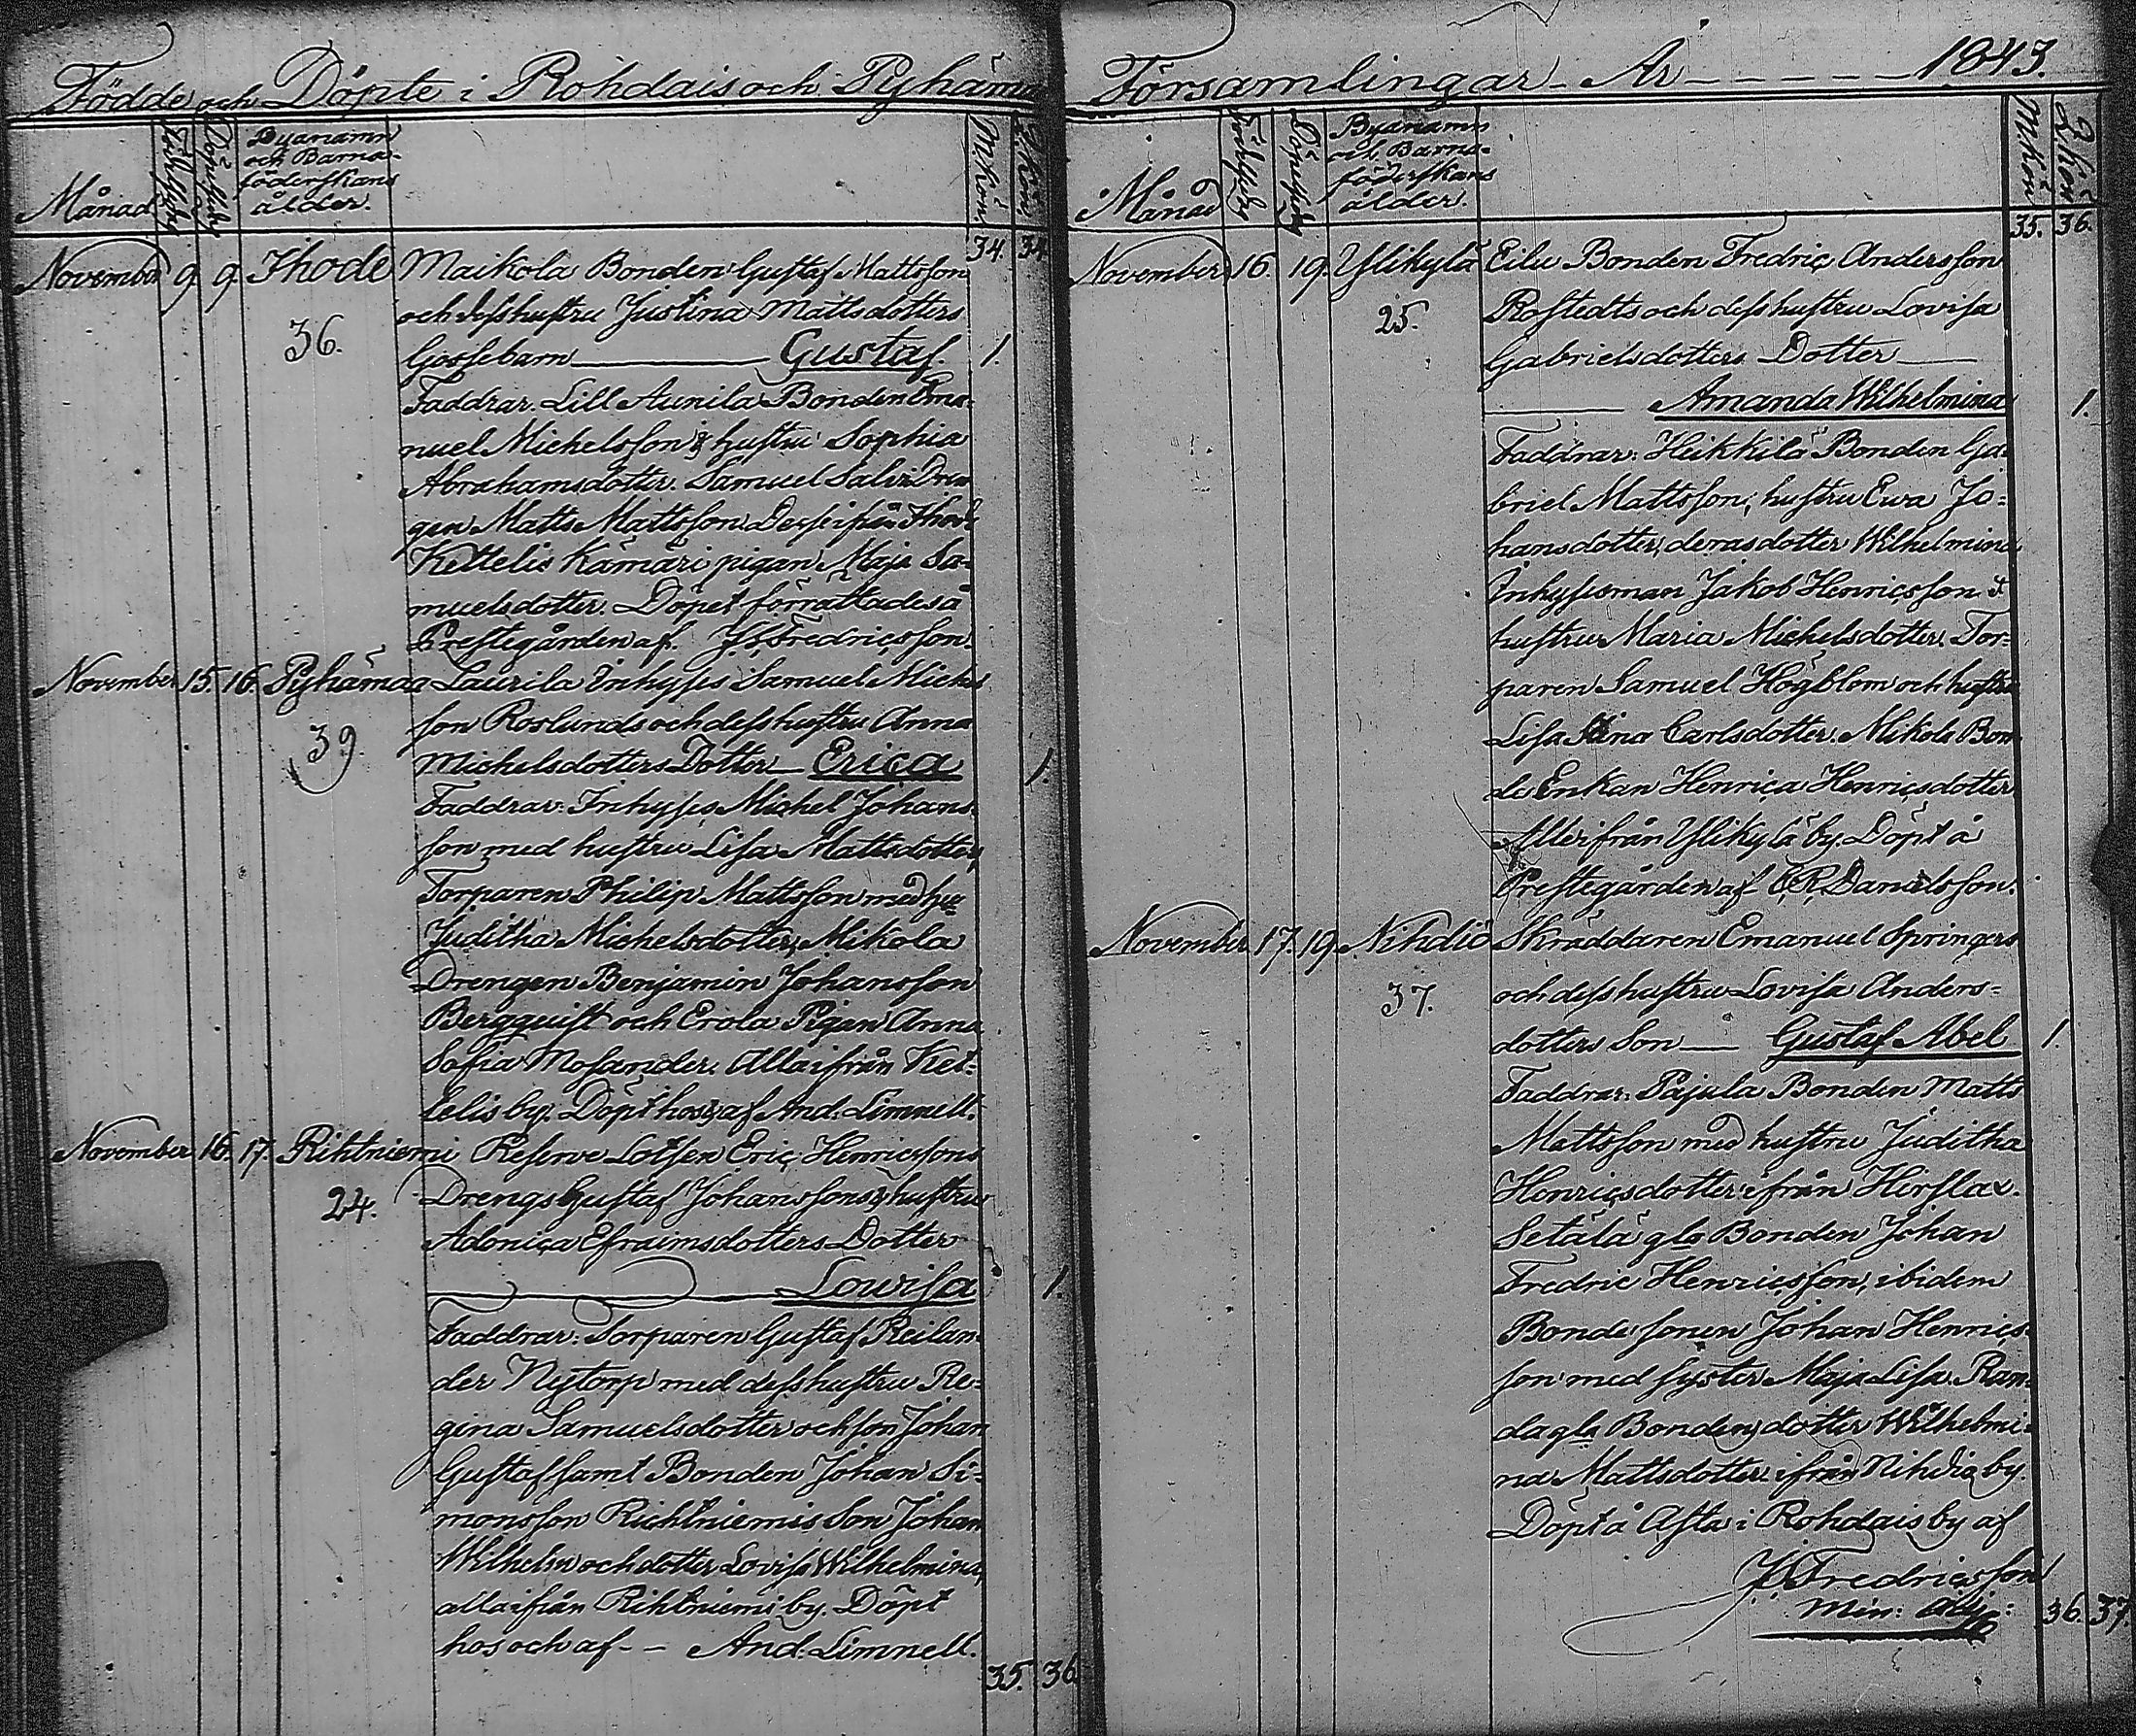 Födde och Döpte i Rohdais och Pyhäma
Månad
Byanamn
och Barna-
föderskans
ålder.
M.kön
Q.kön
34. 34
November 9. 9. Ihode Maikola Bonden Gustaf Mattsson
och dess hustru Justina Mattsdotters
36.
Gossebarn Gustaf. 1.
Faddrar. Lill Aunila Bonden Ema-
nuel Michelsson & hustru Sophia
Abrahamsdotter. Samuel Salvi Dren
gen Matts Mattsson Desse ifrån Ihode
Kettelis Kämäri pigan Maja Sa-
muelsdotter. Döpet förrättades å
Prestegården af J. Fredricsson.
November 15. 16. Pyhämaa Laurila Inhyses Samuel Michels
son Roslunds och dess hustru Anna
39.
Michelsdotters Dotter Erica 1.
Faddrar: Inhyses Michel Johans-
son med hustru Lisa Mattsdotter,
Torparen Philip Mattsson med hu
Juditha Michelsdotter, Mikola
Drengen Benjamin Johansson
Bergquist och Erola Pigan Anna
Sofia Mosander. Alla ifrån Ket-
telis by. Döpt hos & af And. Limnell.
November 16. 17. Rihtniemi Reserve Lotsen Eric Henricssons
24.
Drengs Gustaf Johanssons & hustru
Adonica Efraimsdotters Dotter
Lovisa 1.
Faddrar: Torparen Gustaf Reilan-
der Nytorp med dess hustru Re-
gina Samuelsdotter och son Johan
Gustaf samt Bonden Johan Si-
monsson Richtniemis Son Johan
Wilhelm och dotter Lovisa Wilhelmina,
alla ifrån Rihtniemi by. Döpt
hos och af - - And. Limnell.
35. 36
Församlingar År 1843.
Månad
Byanamn
och Barns-
föderskans
ålder.
M.kön
Q.kön
35. 36.
November 16. 19. Ylikylä Eilu Bonden Fredric Andersson
25.
Rostedts och dess hustru Lovisa
Gabrielsdotters Dotter
Amanda Wilhelmina 1.
Faddrar: Heikkilä Bonden Ga-
briel Mattsson, hustru Ewa Jo-
hansdotter, deras dotter Wilhelmina
Inhysesman Jakob Henricsson &
hustru Maria Michelsdotter. Tor-
paren Samuel Högblom och hustru
Lisa Stina Carlsdotter. Mikola Bon-
de Enkan Henrica Henricsdotter
Alle ifrån Ylikylä by. Döpt å
Prestegården af C.R. Danielsson.
November 17. 19. Nihdiö Skräddaren Emanuel Springers
37.
och dess hustru Lovisa Anders-
dotters Son Gustaf Abel 1.
Faddrar: Pajula Bonden Matts
Mattsson med hustru Juditha
Henricsdotter ifrån Hirslax.
Setälä gla Bonden Johan
Fredric Henricsson, ibidem
Bonde sonen Johan Henrics-
son med syster Maja Lisa. Ran-
da gla Bondens dotter Wilhelmi-
na Mattsdotter ifrån Nihdiö by.
Döpt å Asta i Rohdais by af
J. Fredricsson
Min: adj:
36. 37.